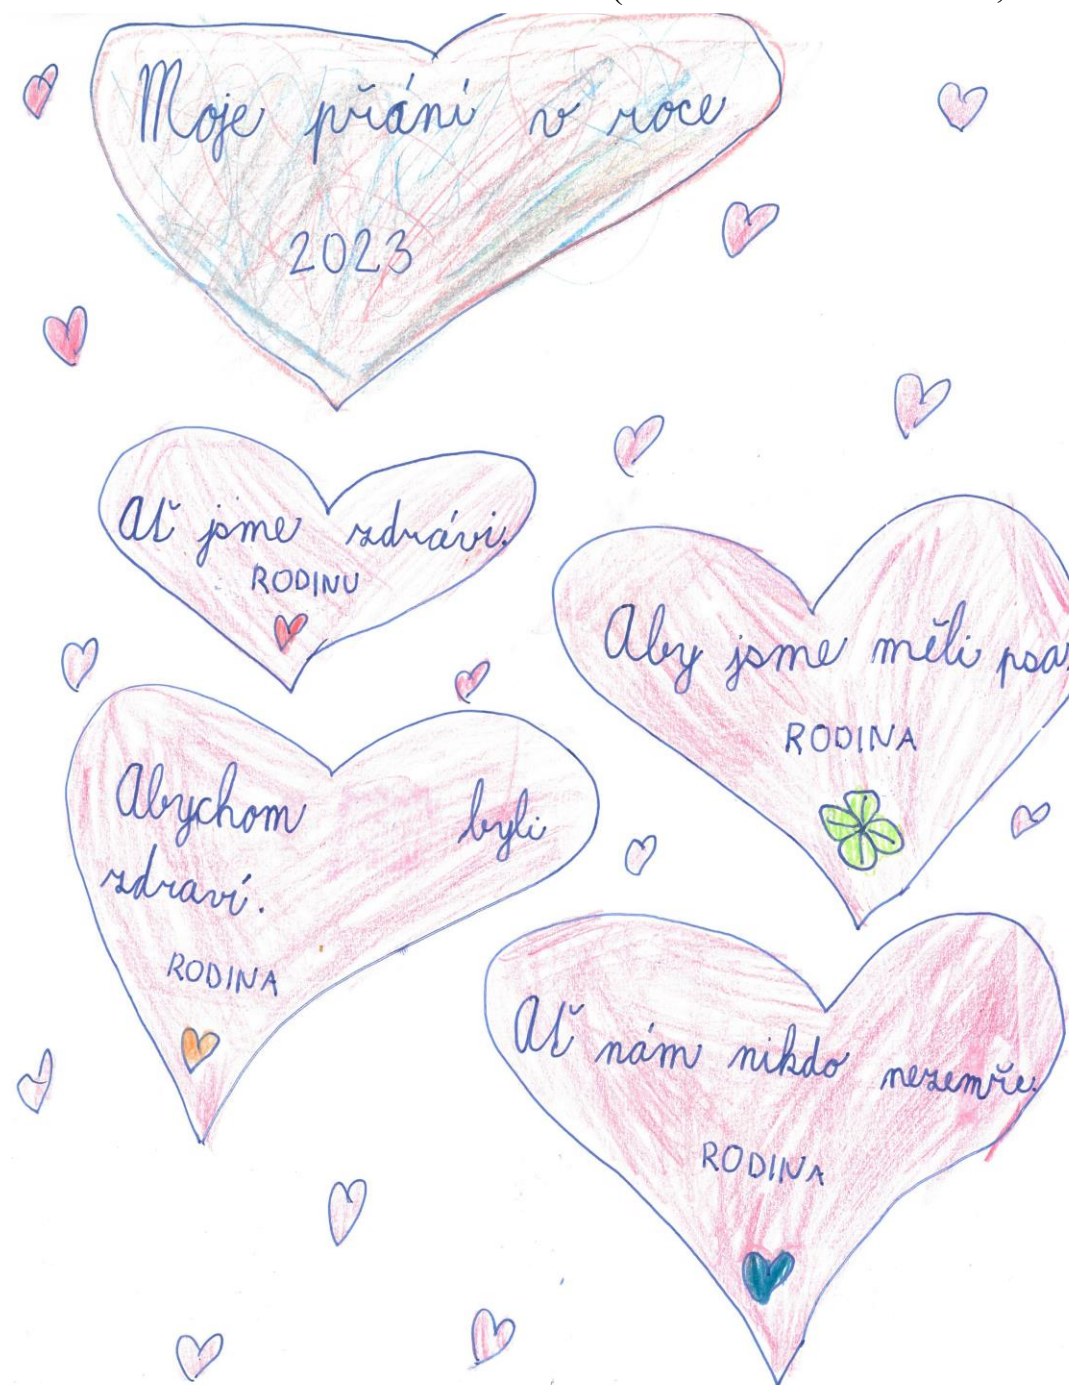 Moje přání v roce
2023
Ať jsme zdrávi.
RODINU
Aby jsme měli psa.
RODINA
Abychom byli
zdraví.
RODINA
Ať nám nikdo nezemře.
RODINA